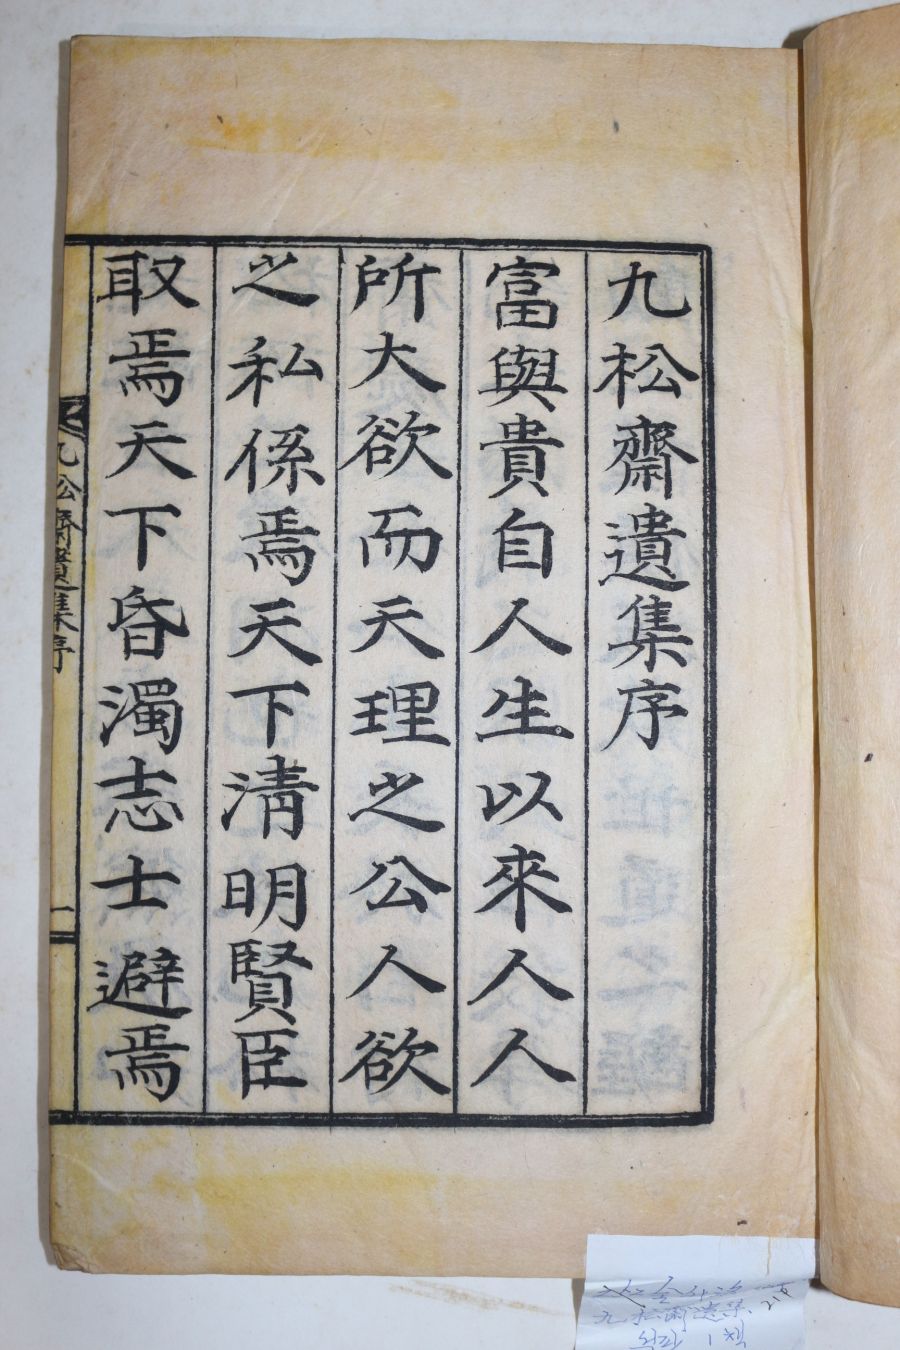 九松齋遺集序
富與貴自人生以來人人
所大欲而天理之公人欲
之私係焉天下淸明賢臣
取焉天下昏濁志士避焉
九松齋遺集序
一
九松齋遺集
목판 1책